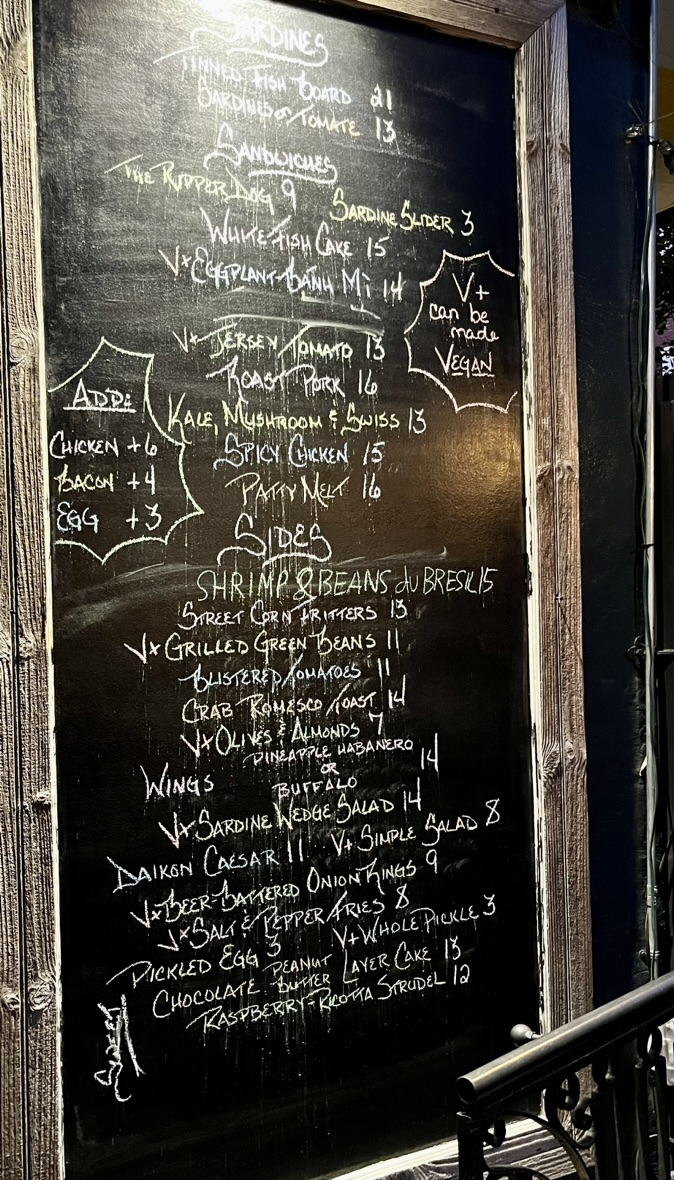 SARDINES
TINNED FISH BOARD 21
SARDINES & TOMATE 13
SANDWICHES
THE RIPPER DOG 9
SARDINE SLIDER 3
WHITE FISH CAKE 15
V+ EGGPLANT BANH MI 14
V+
can be
made
VEGAN
V+ JERSEY TOMATO 13
ROAST PORK 16
KALE, MUSHROOM & SWISS 13
SPICY CHICKEN 15
PATTY MELT 16
ADD:
CHICKEN +6
BACON +4
EGG +3
SIDES
SHRIMP & BEANS du BRESIL 15
STREET CORN FRITTERS 13
V+ GRILLED GREEN BEANS 11
BLISTERED TOMATOES 11
CRAB ROMESCO TOAST 14
V+ OLIVES & ALMONDS 7
WINGS PINEAPPLE HABANERO OR BUFFALO 14
V+ SARDINE WEDGE SALAD 14
DAIKON CAESAR 11 V+ SIMPLE SALAD 8
V+ BEER-BATTERED ONION RINGS 9
V+ SALT & PEPPER FRIES 8
PICKLED EGG 3 V+ WHOLE PICKLE 3
CHOCOLATE PEANUT BUTTER LAYER CAKE 13
RASPBERRY-RICOTTA STRUDEL 12
Sweet